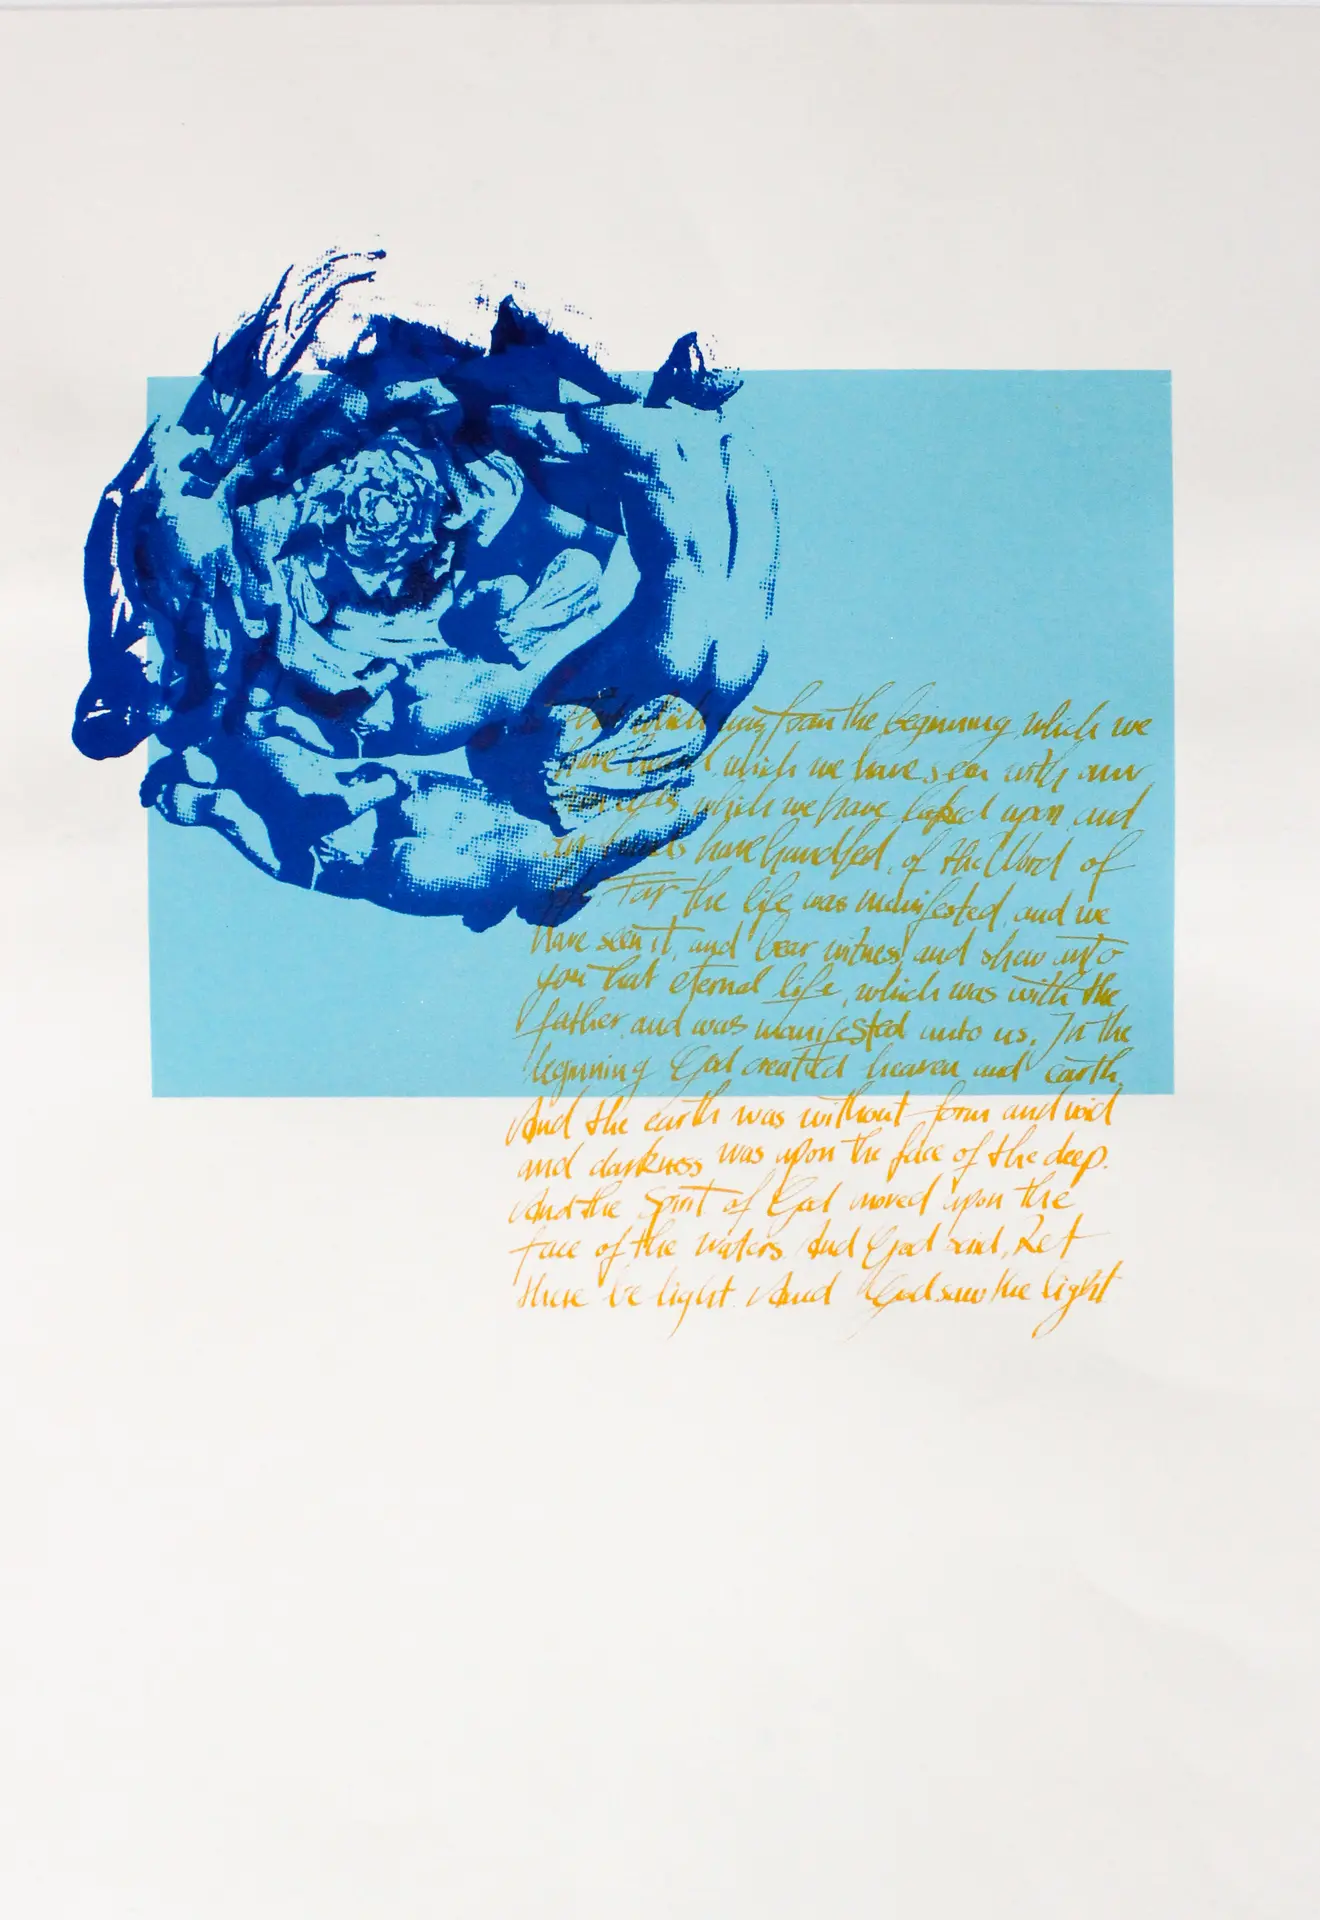 That which was from the beginning which we
have heard, which we have seen with our
own eyes, which we have looked upon and
our hands have handled, of the Word of
life. For the life was manifested, and we
have seen it, and bear witness and shew unto
you that eternal life, which was with the
father, and was manifested unto us. In the
beginning God created heaven and earth.
And the earth was without form and void
and darkness was upon the face of the deep.
And the Spirit of God moved upon the
face of the waters. And God said, Let
there be light. And God saw the light